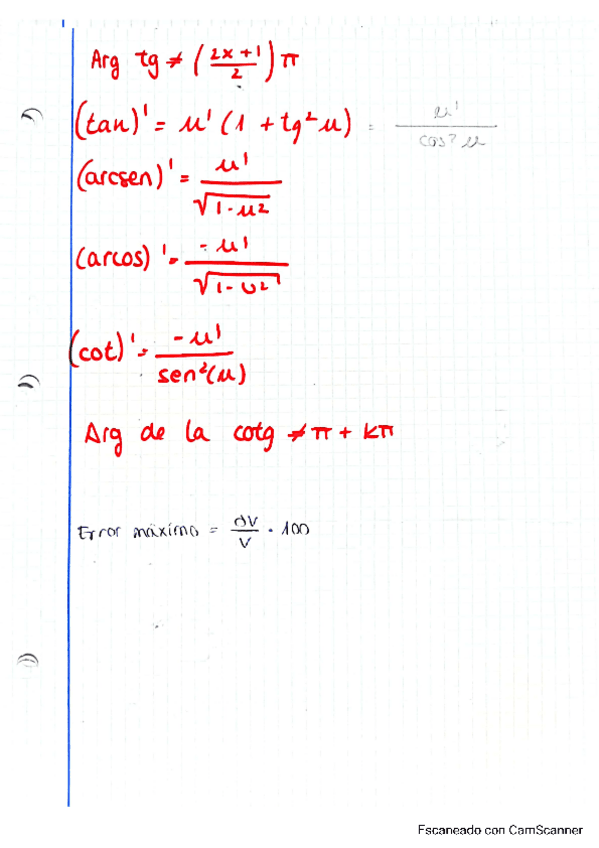 Arg tg ≠ (2x+1/2) π
(tan)' = u' (1 + tg² u) = u'/cos² u
(arcsen)' = u'/√1-u²
(arcos)' = -u'/√1-u²
(cot)' = -u'/sen²(u)
Arg de la cotg ≠ π + kπ
Error máximo = dV/V · 100
Escaneado con CamScanner